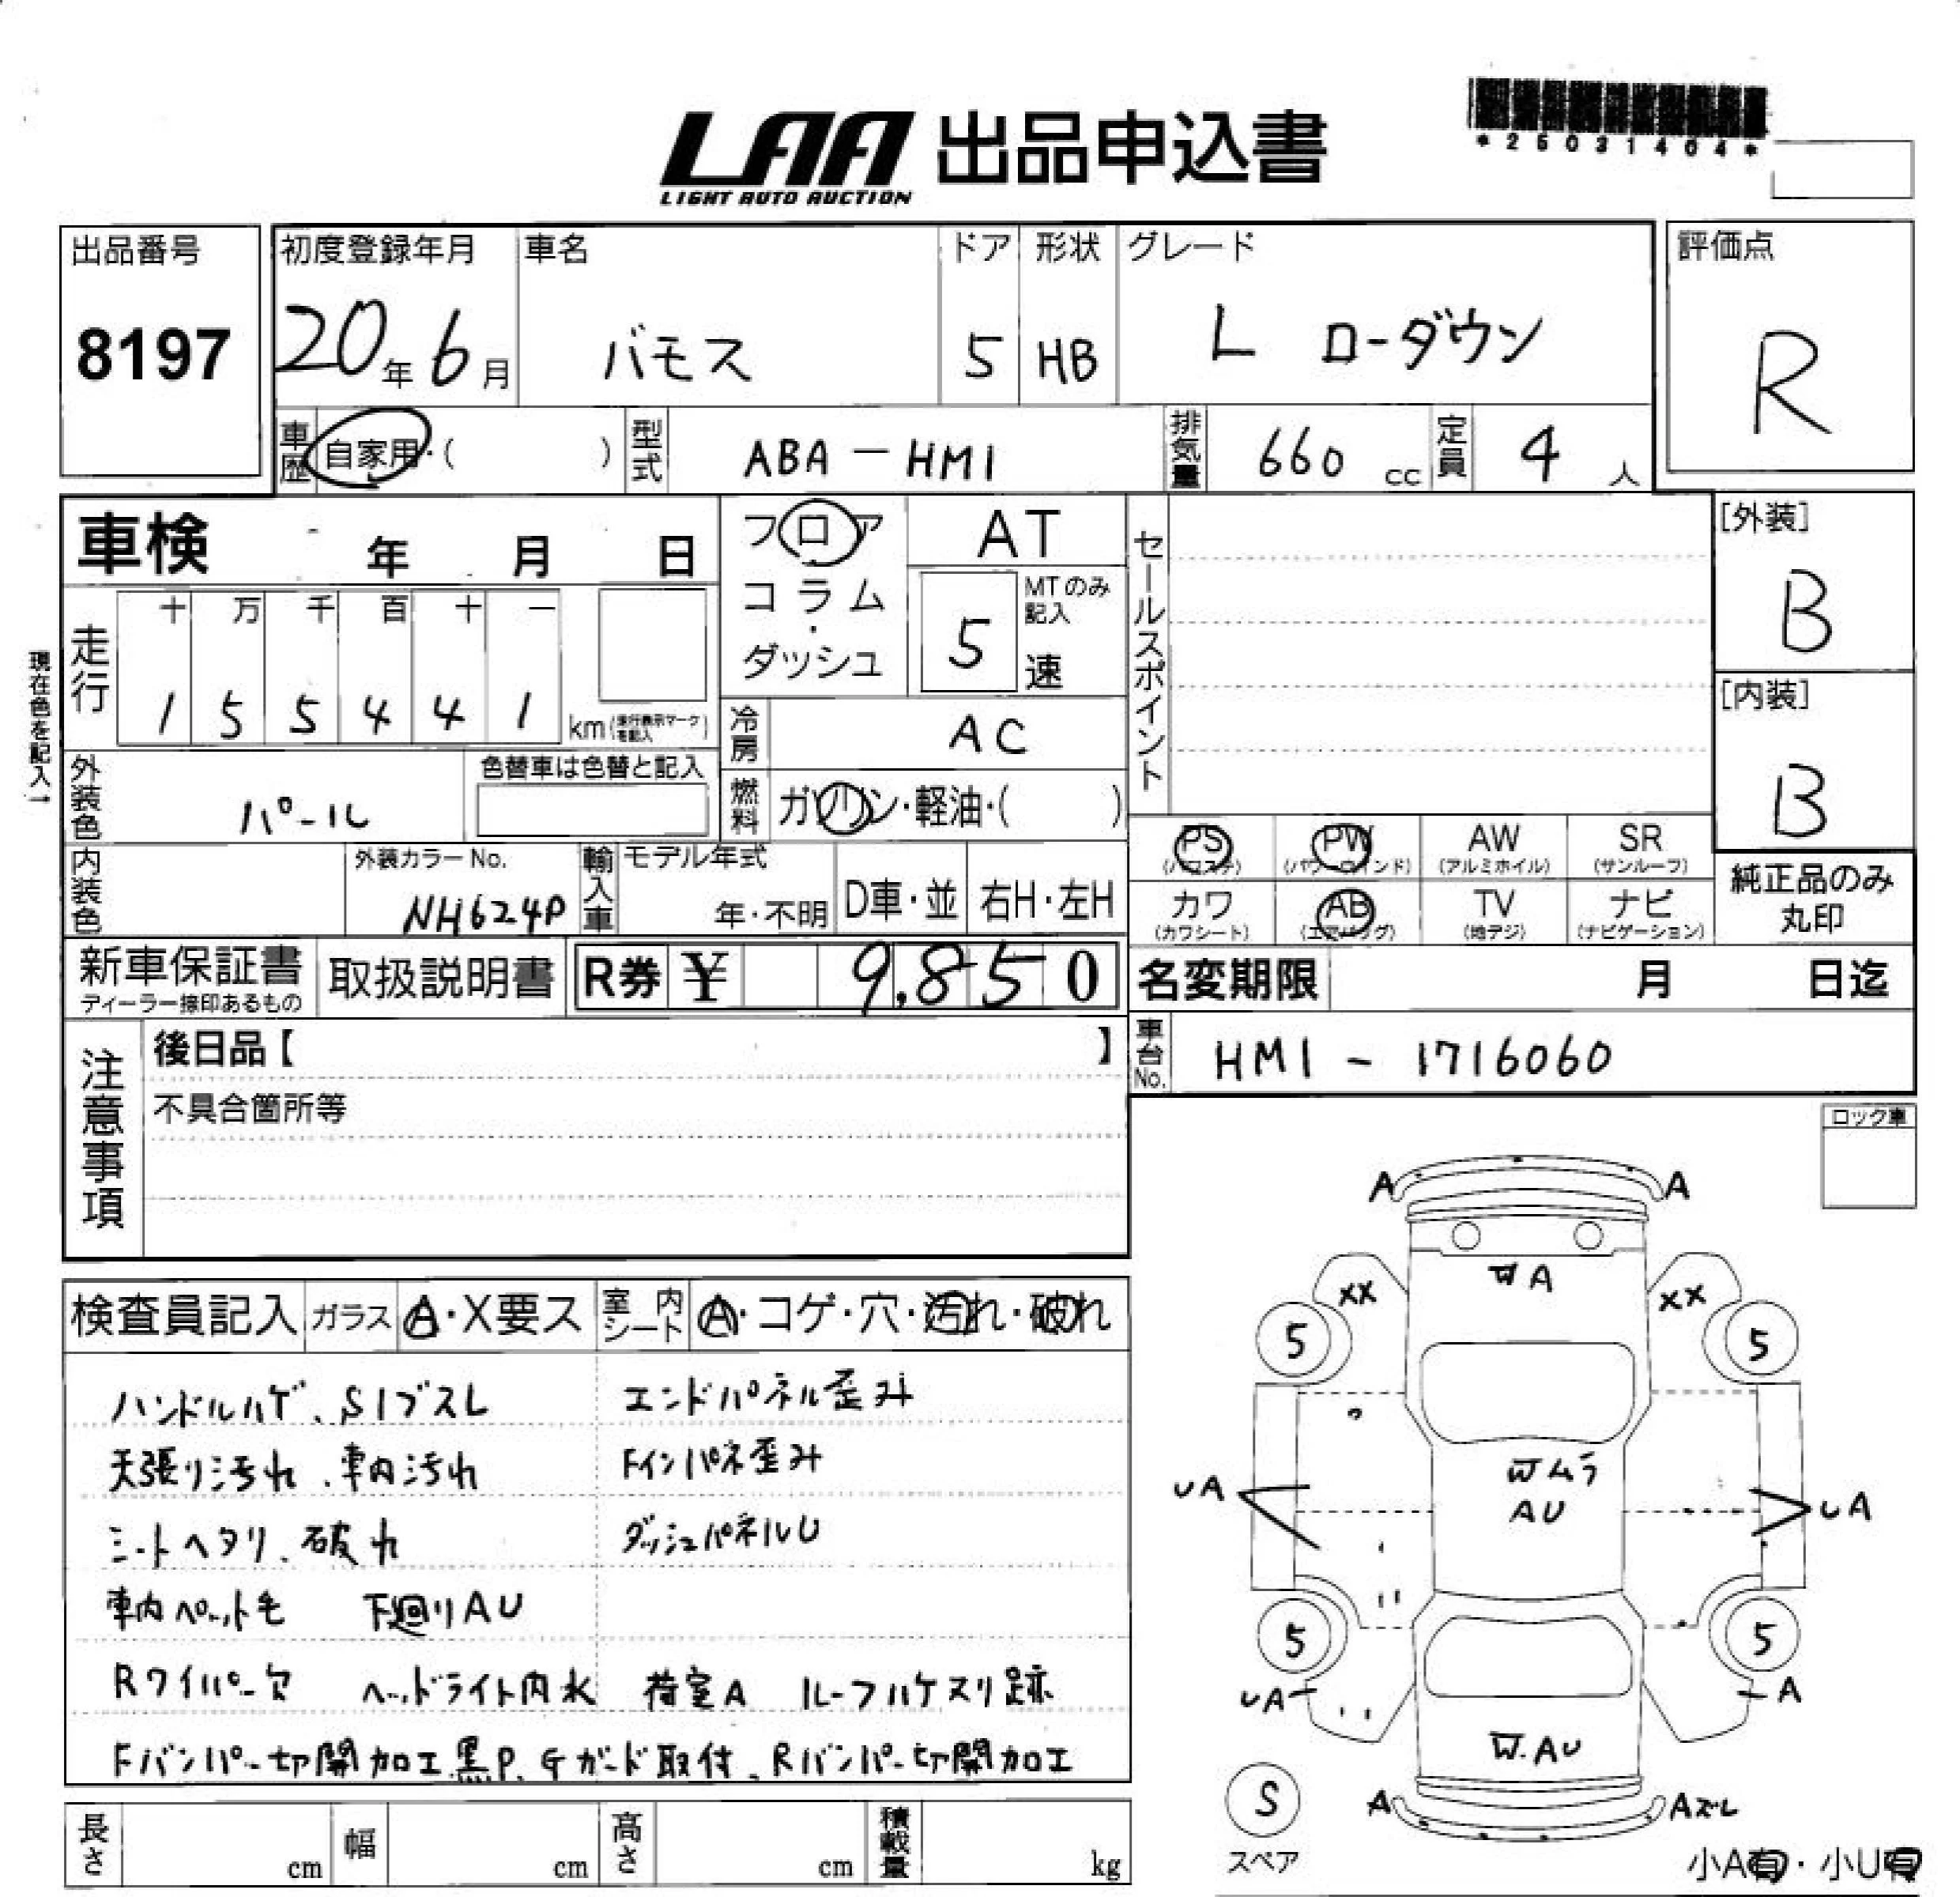 *25031404*
LAA 出品申込書
LIGHT AUTO AUCTION
出品番号 初度登録年月 車名 ドア 形状 グレード 評価点
8197 20年6月 バモス 5 HB L ローダウン R
車歴 自家用・( ) 型式 ABA-HM1 排気量 660 cc 定員 4 人
車検 年 月 日 フロア AT セールスポイント [外装]
コラム・ MTのみ記入 B
ダッシュ 5 速
走行 十 万 千 百 十 一
1 5 5 4 4 1 km (走行表示マークを記入)
現在色を記入→
冷房 AC [内装]
外装色 パール 色替車は色替と記入 燃料 ガソリン・軽油・( ) B
PS (パワステ) PW (パワーウインド) AW (アルミホイル) SR (サンルーフ)
内装色 外装カラーNo. NH624P 輸入車 モデル年式 年・不明 D車・並 右H・左H
カワ (カワシート) AB (エアバッグ) TV (地デジ) ナビ (ナビゲーション) 純正品のみ丸印
新車保証書 ディーラー捺印あるもの 取扱説明書 R券 ¥ 9,850 名変期限 月 日迄
注意事項 後日品【 】 車台No. HM1-1716060
不具合箇所等
ロック車
検査員記入 ガラス A・X要ス 室内シート A・コゲ・穴・汚れ・破れ
ハンドルハゲ、S1ブスレ エンドパネル歪み
天張り汚れ、車内汚れ Fインパネ歪み
シートヘタリ、破れ ダッシュパネルU
車内ペット毛 下廻りAU
Rワイパー欠 ヘッドライト内水 荷室A ルーフハケヌリ跡
Fバンパー切開加工黒P、Gガード取付、Rバンパー切開加工
A A
WA
XX XX
5 5
Wムラ
UA AU UA
5 5
UA A
W.AU
S
スペア
A Aズレ
小A有・小U有
長さ cm 幅 cm 高さ cm 積載量 kg